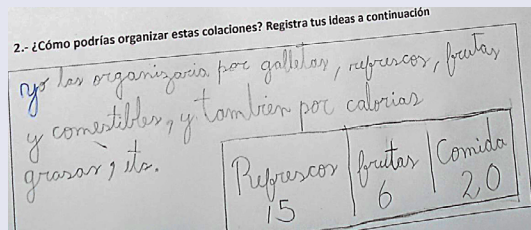 2.- ¿Cómo podrías organizar estas colaciones? Registra tus ideas a continuación
yo las organizaria por galletas, refrescos, frutas
y comestibles, y tambien por calorias
grasas, its.
Refrescos frutas Comida
15 6 2,0